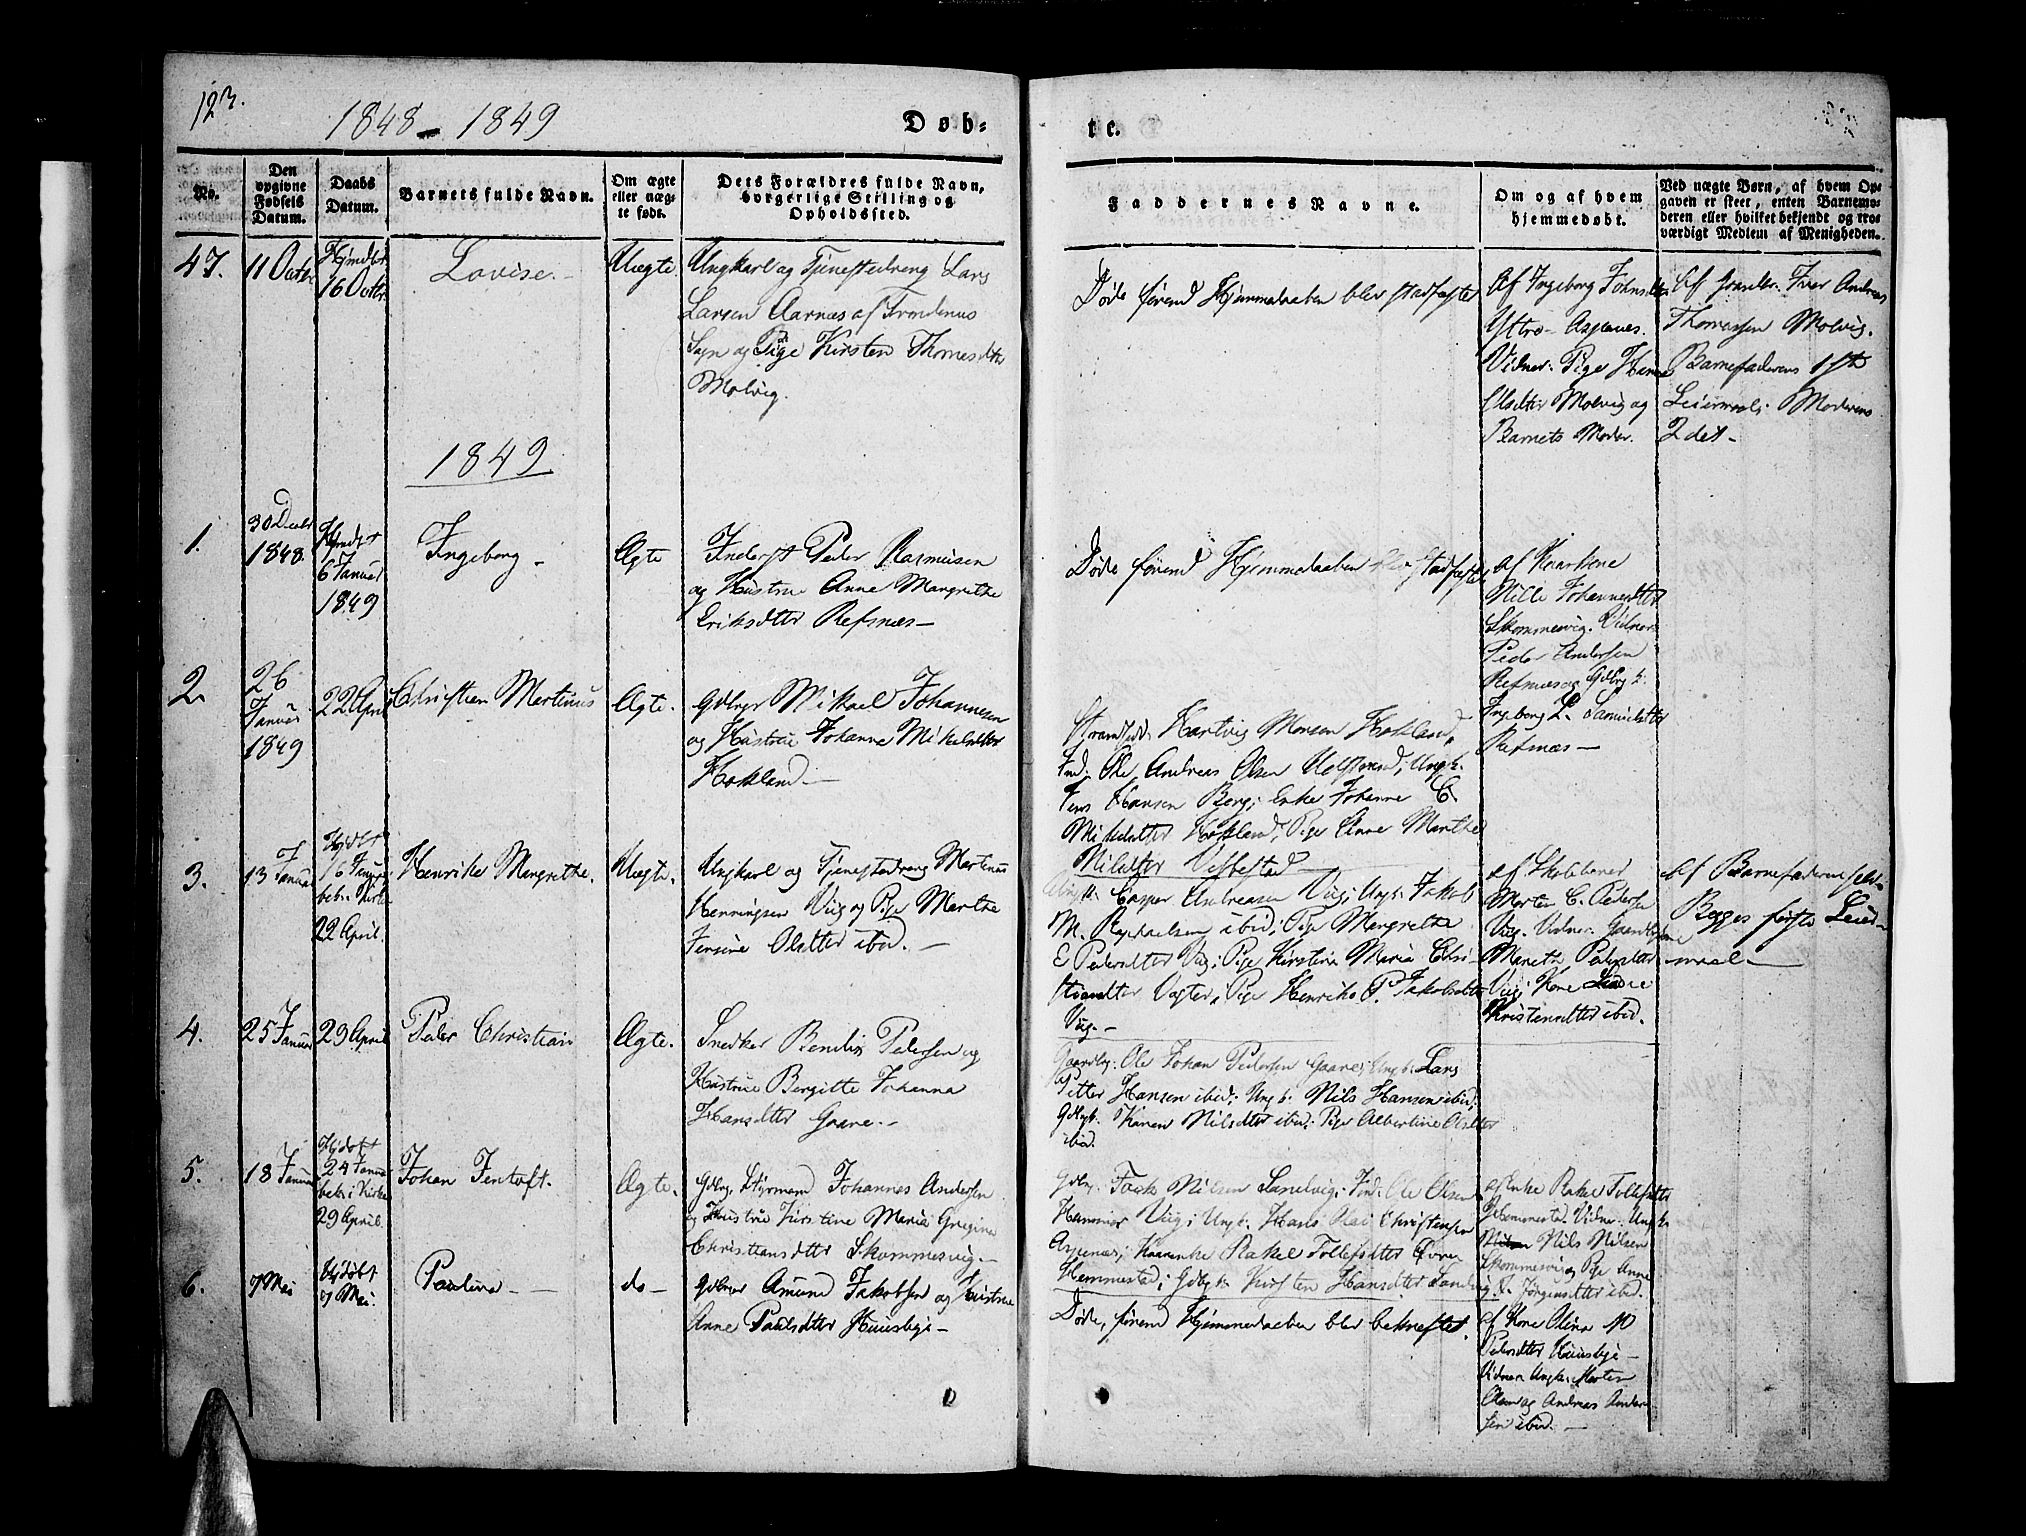 123.
1848 - 1849
Døb-
te.
No.
Den
opgivne
Fødsels
Datum.
Daabs
Datum.
Barnets fulde Navn.
Om ægte
eller uæg-
te født.
Dets Forældres fulde Navn,
borgerlige Stilling og
Opholdssted.
Faddernes Navne.
Om og af hvem
hjemmedøbt.
Ved uægte Børn, af hvem Op-
gaven er skeet, enten Barnemo-
deren eller hvilket bekjendt og tro-
værdigt Medlem af Menigheden.
47.
11 Octbr
16 Octbr.
Lovise.
Uægte.
Ungkarl og Tjenestedreng Lars
Larsen Aarnæs af Trondenæs
Sogn og Pige Kirsten Thomesdtr
Molvig.
Døde førend Hjemmedaaben blev stadfæstet
Af Ingeborg Johnsdtr
Ytre - Aspenæs.
Vidner: Pige Hanna
Olsdtter Molvig og
Barnets Moder.
Af Iver Andreas
Thomassen Molvig.
Barnefaderens 1ste
Leiermaal; Moderens
2det -
1849
1.
30 Decbr
1848.
6 Januar
1849
Ingeborg -
Ægte
Inderst Peder Rasmusen
og Hustrue Anne Mangrethe
Eriksdtter Refsnæs -
Døde førend Hjemmedaaben blev stadfæstet
af
Nille Johannesdtter
Skommesvig. Vidner
Peder Andersen
Refsnæs og Gdbrg k:
Ingeborg L. Samuelsdtter
Refsnæs -
2
26
Januar
1849
22 April
Christian Martinus
Ægte.
Gdbrgr Mikael Johannesen
og Hustrue Johanna Mikelsdtter
Hokland. -
Hartvig Monsen Hokland,
Ind: Ole Andreas Olsen Ungk.
Jens Hansen Berg; Enke Johanne C.
Mikelsdtter Hokland; Pige Anne Marthe
Nilsdtter
3.
13 Januar
16 Januar
bekr. i Kirken
22 April.
Henrikke Mangrethe.
Uægte.
Ungkarl og Tjenestedreng Martinus
Henningsen Viig og Pige Marthe
Jensine Olsdtter ibid. -
Ungk: Casper Andreasen Viig; Ungk: Jakob
M. ibid; Pige Mangrethe
E Pedersdtter Viig; Pige Kirstina Maria Chri-
stiansdtter Pige Henrikke P. Jakobsdtter
Viig. -
af Skoleholder
Morten C. Pedersen
Viig. Vidner:
Pedersdtter
Viig; Kone
Kristensdtter ibid.
Af Barnefaderen selv.
Begges første Leier-
maal -
4.
25 Januar
29 April
Peder Christian
Ægte.
Snedker Bendix Pedersen og
Hustrue Bergitte Johanna
Hansdtter Gaare. -
Gaardbg: Ole Johan Pedersen Gaare; Ungk: Lars
Petter Hansen ibid; Ungk: Nils Hansen ibid;
Karen Nilsdtter ibid: Pige Albertine Olsdtter
ibid.
5.
18 Januar
Hjdøbt
24 Januar
bekr. i Kirken
29 April.
Johan Jentoft.
Ægte.
Gdbrg Styrmand Johannes Andersen
og Hustrue Kirstine Maria Gregine
Christiansdtter Skommesvig. -
Gdbrg: Nilsen Sandvig; Ind: Ole Olsen
Viig; Ungk. Hans Christensen
Aspenæs; Rakel Tollefsdtter Øvre
Hemmestad; Gdbg k: Kirsten Hansdtter Sandvig
af Enke Rakel Tollefsdtter
Hemmestad. Vidner: Ungk
Nils Nilsen
Skommesvig og Pige Anne
K. Jörgensdtter ibid.
6.
7 Mai
Hjdøbt
9 Mai.
Paulina -
do -
Gdbrgr Amund Jakobsen og Hustrue
Anne Paulsdtter Huusbye -
Døde, førend Hjemmedaaben blev bekræftet.
af Kone Olina M
Pedersdtter Huusbye -
Vidner Ungk: Morten
Olsen og Andreas Ander-
sen ibid. -